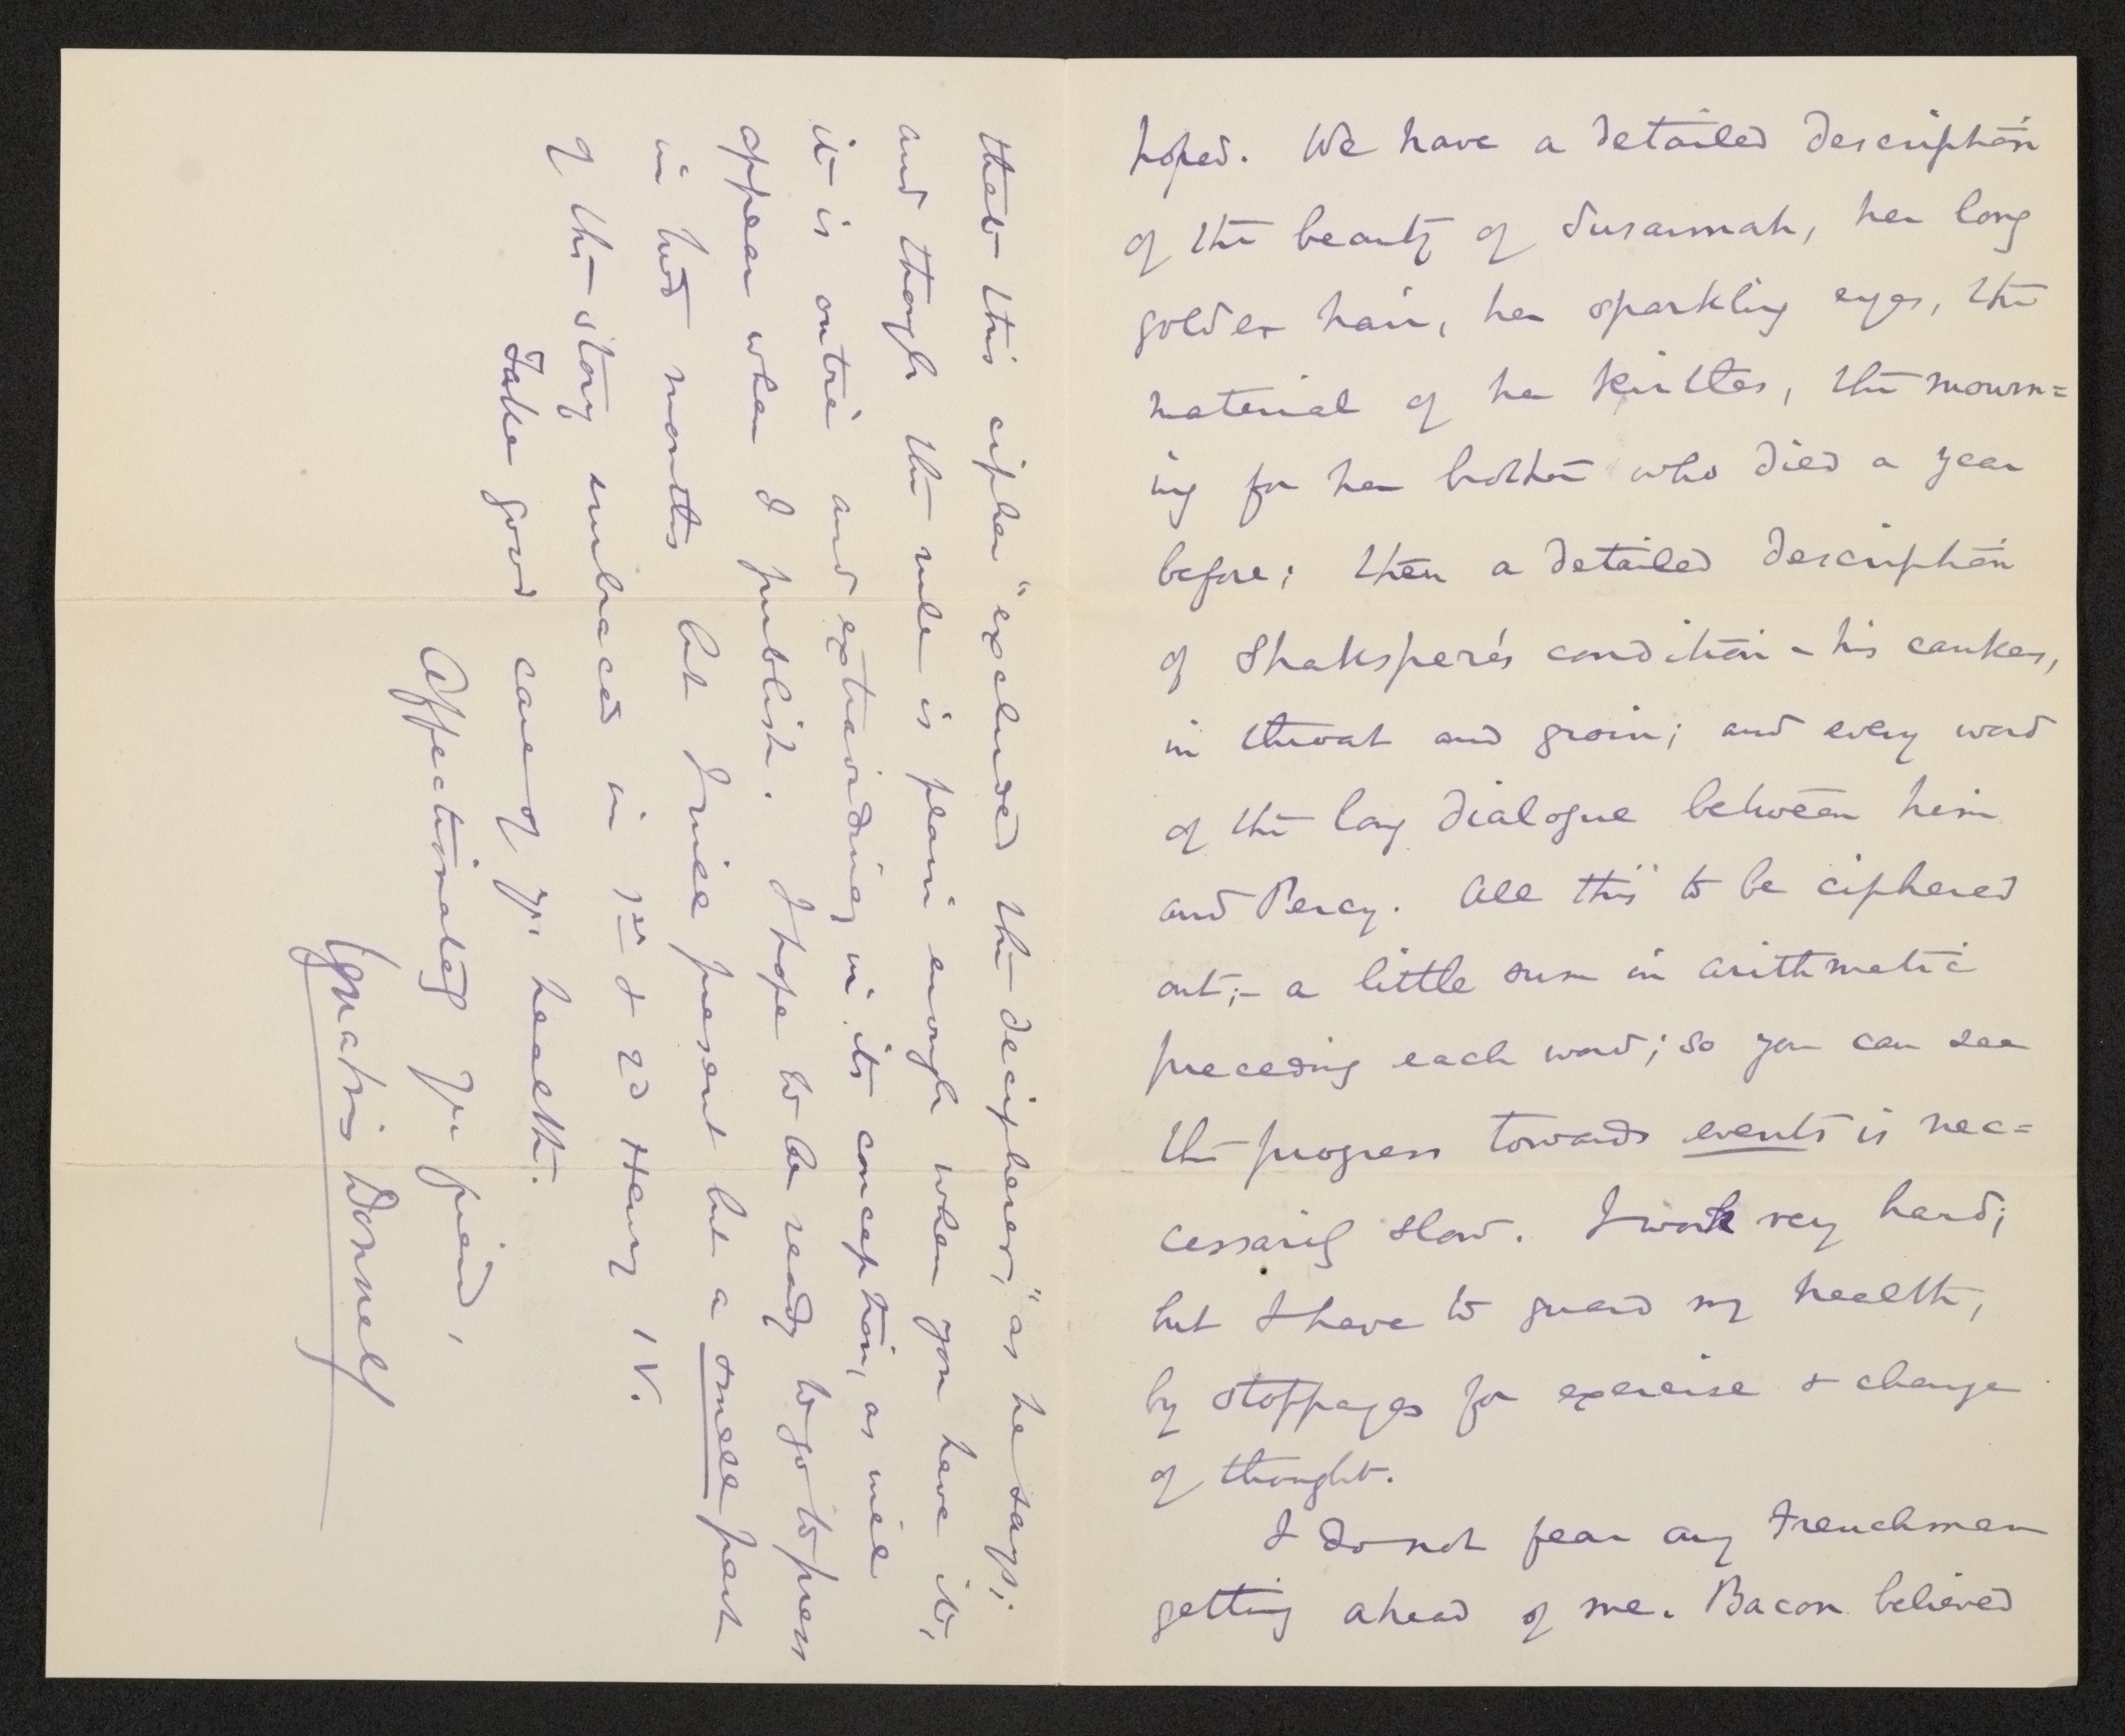 hoped. We have a detailed description
of the beauty of Susannah, her long
golden hair, her sparkling eyes, the
material of her kirtles, the mourn=
ing for her brother who died a year
before; then a detailed description
of Shakspere's condition - his cankers,
in throat and groin; and every word
of the long dialogue between him
and Percy. All this to be ciphered
out;- a little sum in arithmetic
preceding each word; so you can see
the progress towards events is nec=
cessarily slow. I work very hard;
but I have to guard my health,
by stoppages for exercise & change
of thought.
I do not fear any Frenchman
getting ahead of me. Bacon believed
that this cipher "excluded the decipherer," as he says;
and though the rule is plain enough when you have it,
it is outré and extraordinary in its conception, as will
appear when I publish. I hope to be ready to go to press
in two months but I will present but a small part
of the story embraced in 1st & 2d Henry IV.
Take good care of yr health.
Affectionately yr friend,
Ignatius Donnelly